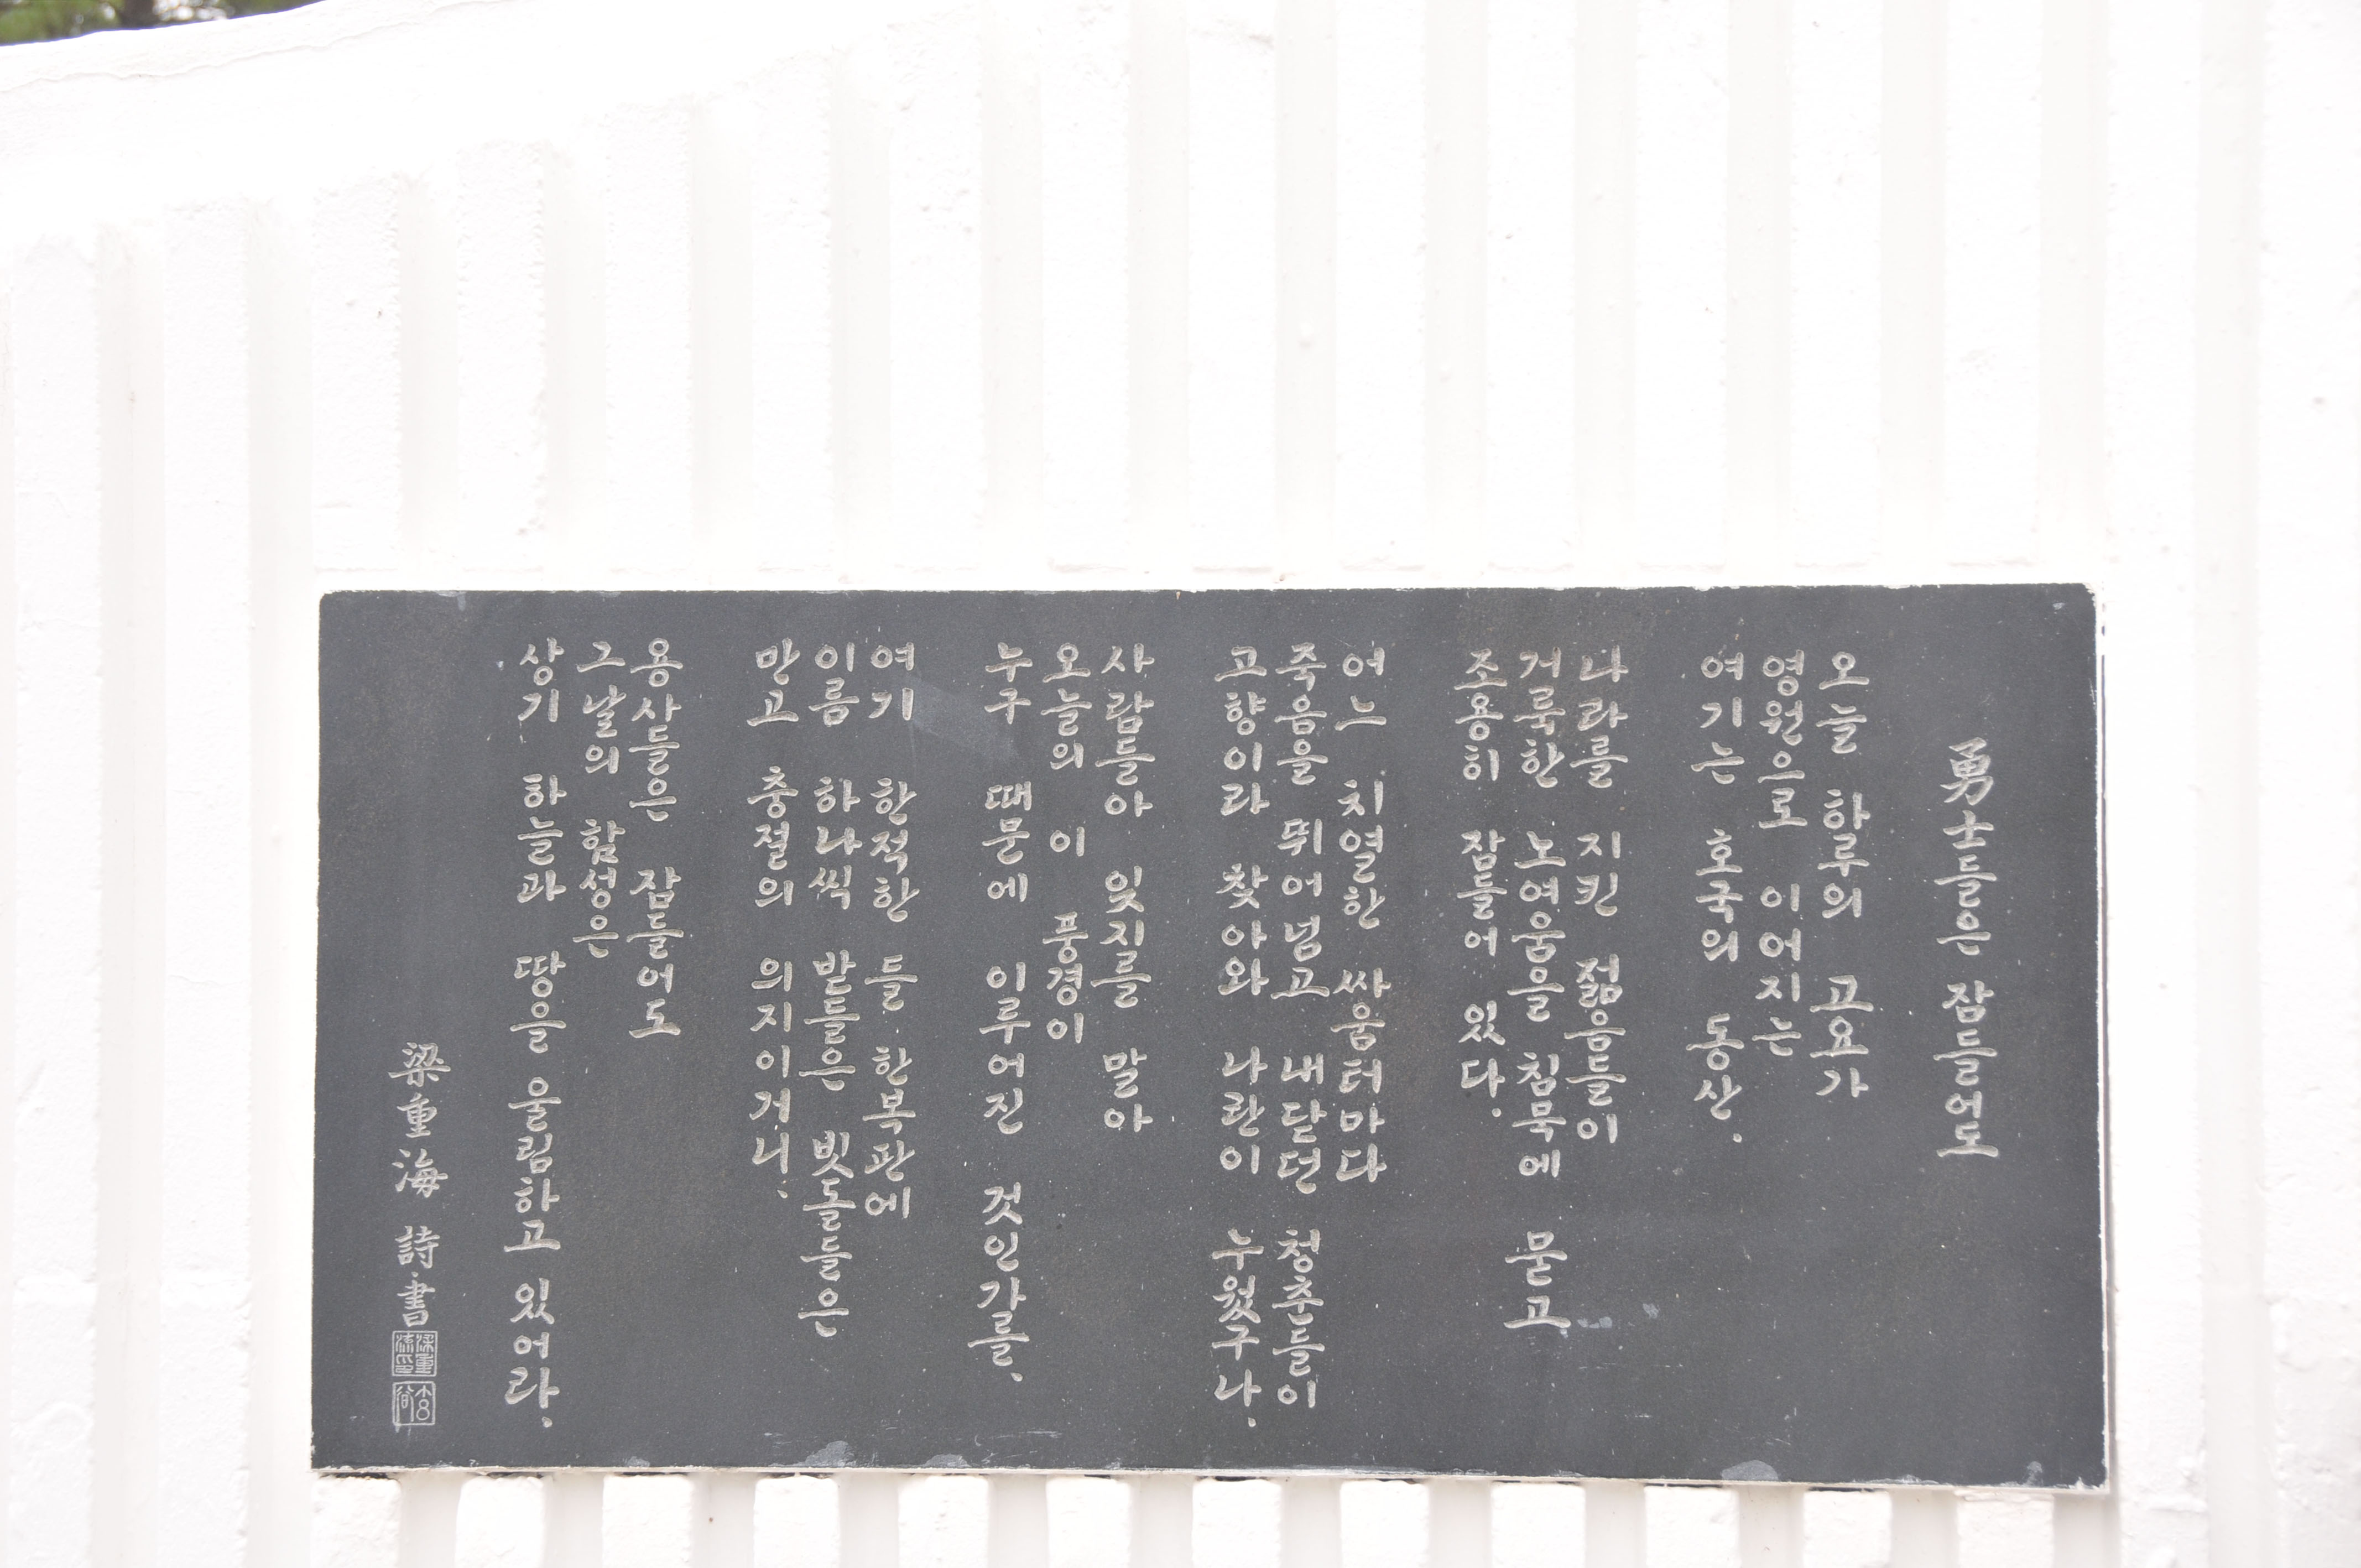 勇士들은 잠들어도
오늘 하루의 고요가
영원으로 이어지는
여기는 호국의 동산.
나라를 지킨 젊음들이
거룩한 노여움을 침묵에 묻고
조용히 잠들어 있다.
어느 치열한 싸움터마다
죽음을 뛰어넘고 내닫던 청춘들이
고향이라 찾아와 나란이 누웠구나.
사람들아 잊지를 말아
오늘의 이 풍경이
누구 때문에 이루어진 것인가를.
여기 한적한 들 한복판에
이름 하나씩 받들은 빗돌들은
만고 충절의 의지이거니.
용사들은 잠들어도
그날의 함성은
상기 하늘과 땅을 울림하고 있어라.
梁重海 詩·書